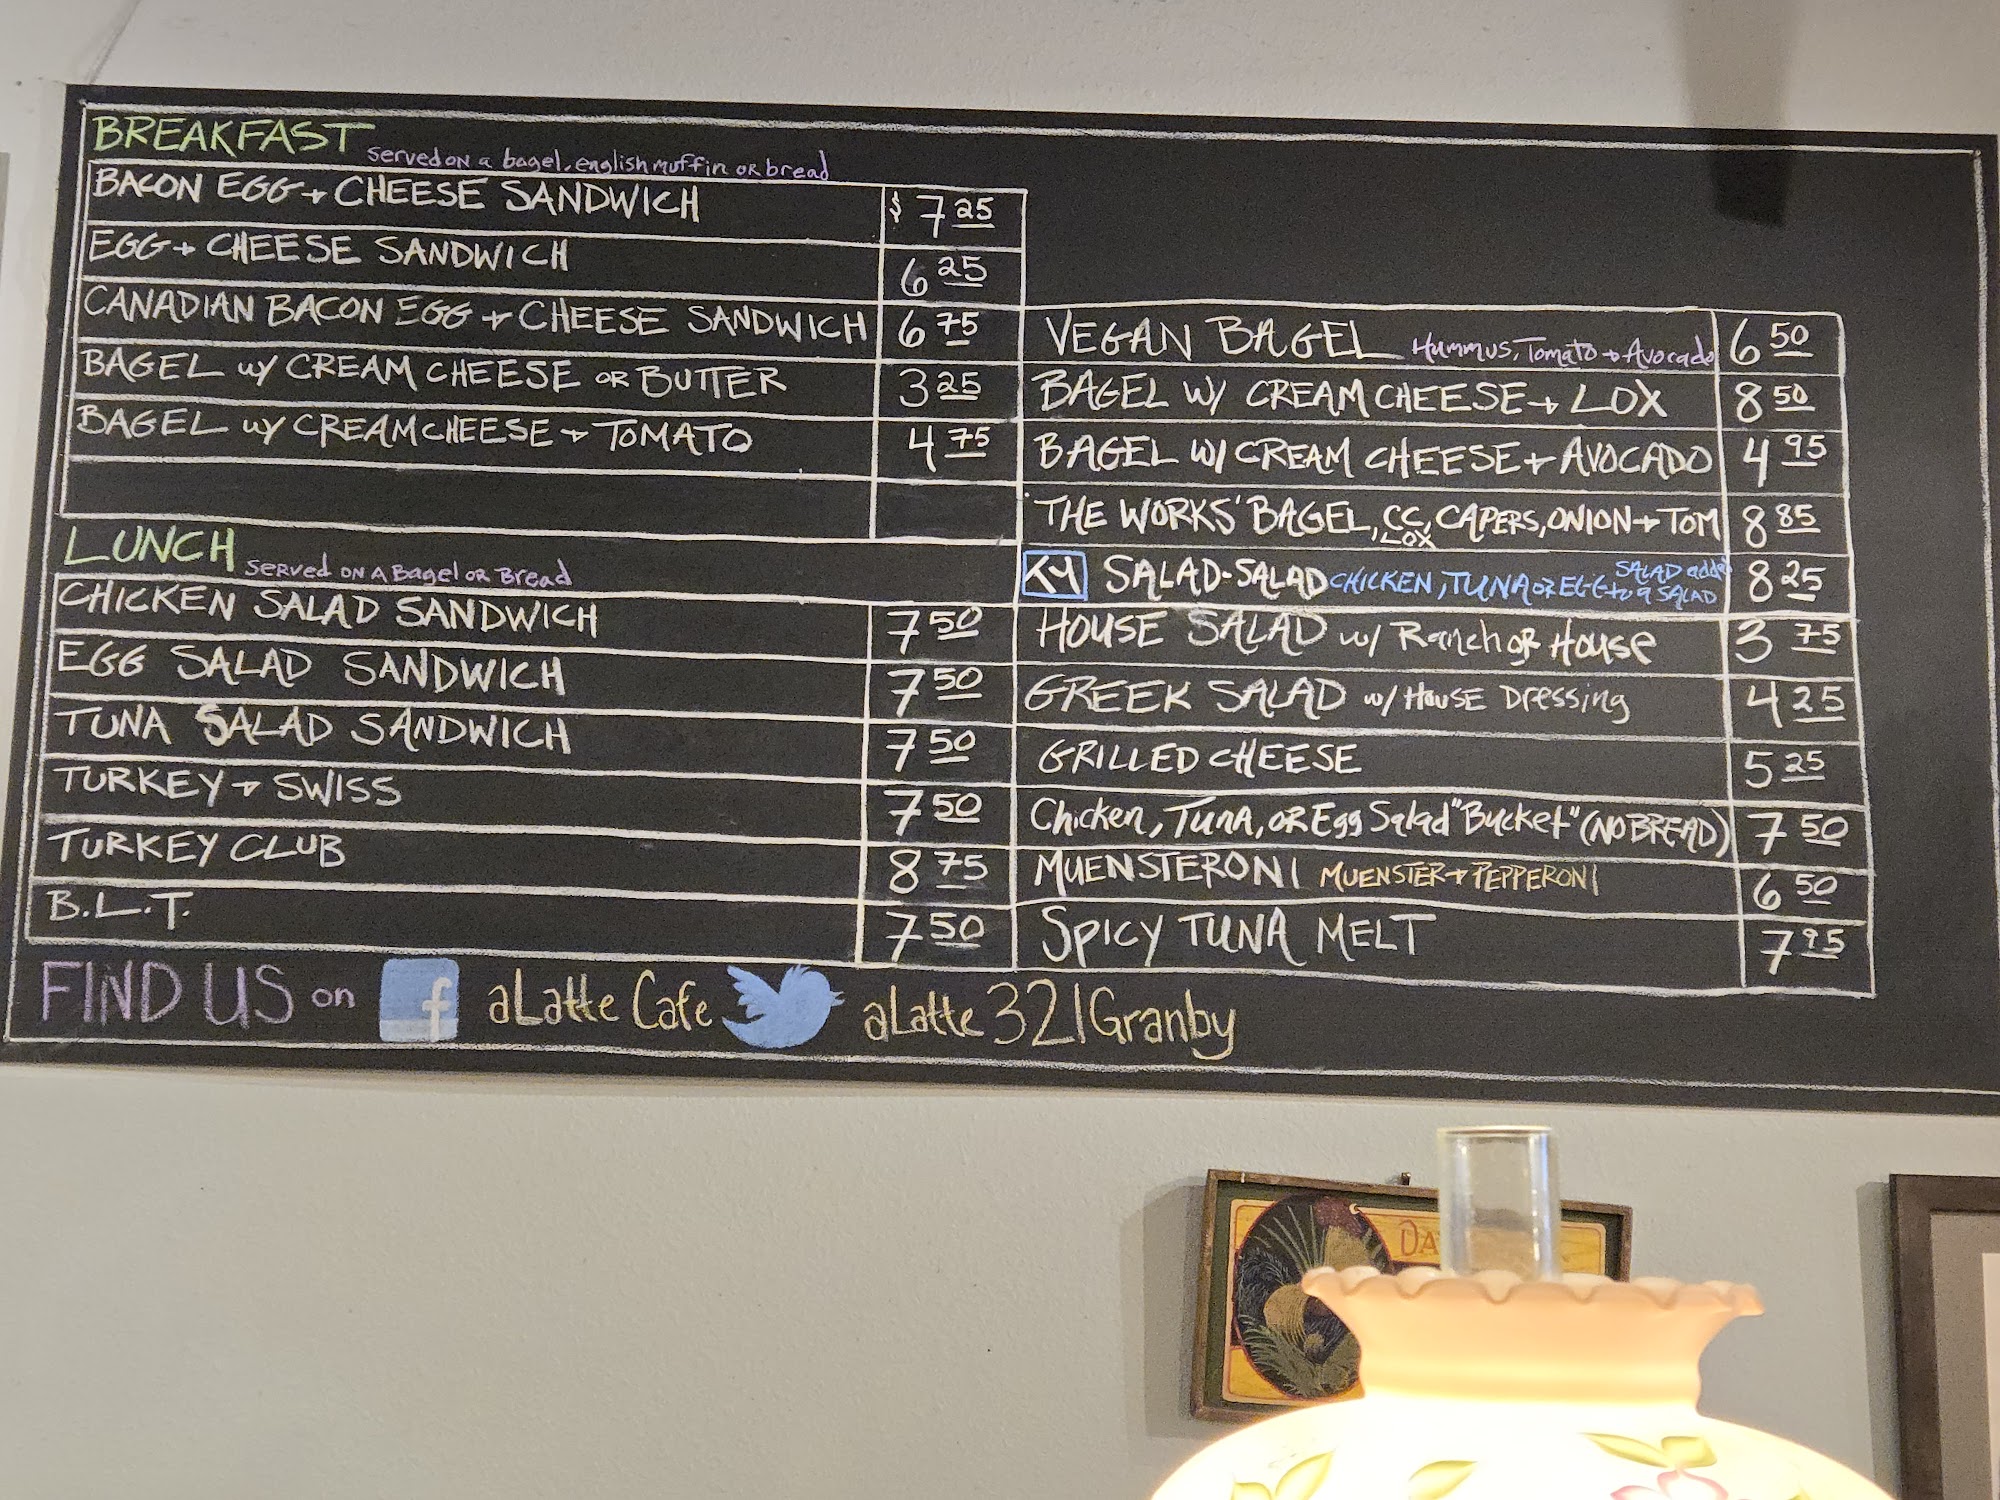 BREAKFAST served on a bagel, english muffin or bread
BACON EGG + CHEESE SANDWICH $ 7 25
EGG + CHEESE SANDWICH 6 25
CANADIAN BACON EGG + CHEESE SANDWICH 6 75
BAGEL w/ CREAM CHEESE OR BUTTER 3 25
BAGEL w/ CREAM CHEESE + TOMATO 4 75
LUNCH served on a Bagel or Bread
CHICKEN SALAD SANDWICH 7 50
EGG SALAD SANDWICH 7 50
TUNA SALAD SANDWICH 7 50
TURKEY + SWISS 7 50
TURKEY CLUB 8 75
B.L.T. 7 50
VEGAN BAGEL Hummus, Tomato + Avocado 6 50
BAGEL W/ CREAM CHEESE + LOX 8 50
BAGEL W/ CREAM CHEESE + AVOCADO 4 95
'THE WORKS' BAGEL, CC, LOX, CAPERS, ONION + TOM 8 85
SALAD-SALAD CHICKEN, TUNA OR EGG SALAD added to a SALAD 8 25
HOUSE SALAD w/ Ranch OR House 3 75
GREEK SALAD w/ House Dressing 4 25
GRILLED CHEESE 5 25
Chicken, Tuna, or Egg Salad "Bucket" (NO BREAD) 7 50
MUENSTERONI MUENSTER + PEPPERONI 6 50
SPICY TUNA MELT 7 95
FIND US on f aLatte Cafe aLatte321Granby
DA